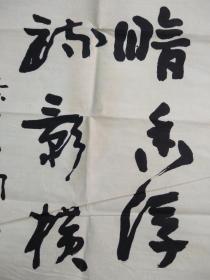 暗香浮
疏影横